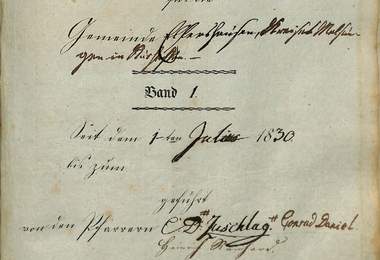 Gemeinde Elfershausen, Kreises Melsun-
gen in Kurhessen.
Band 1.
Seit dem 1ten Julius 1830
bis zum
geführt
von den Pfarrern C D "Juschlag" Conrad Daniel
Heinrich